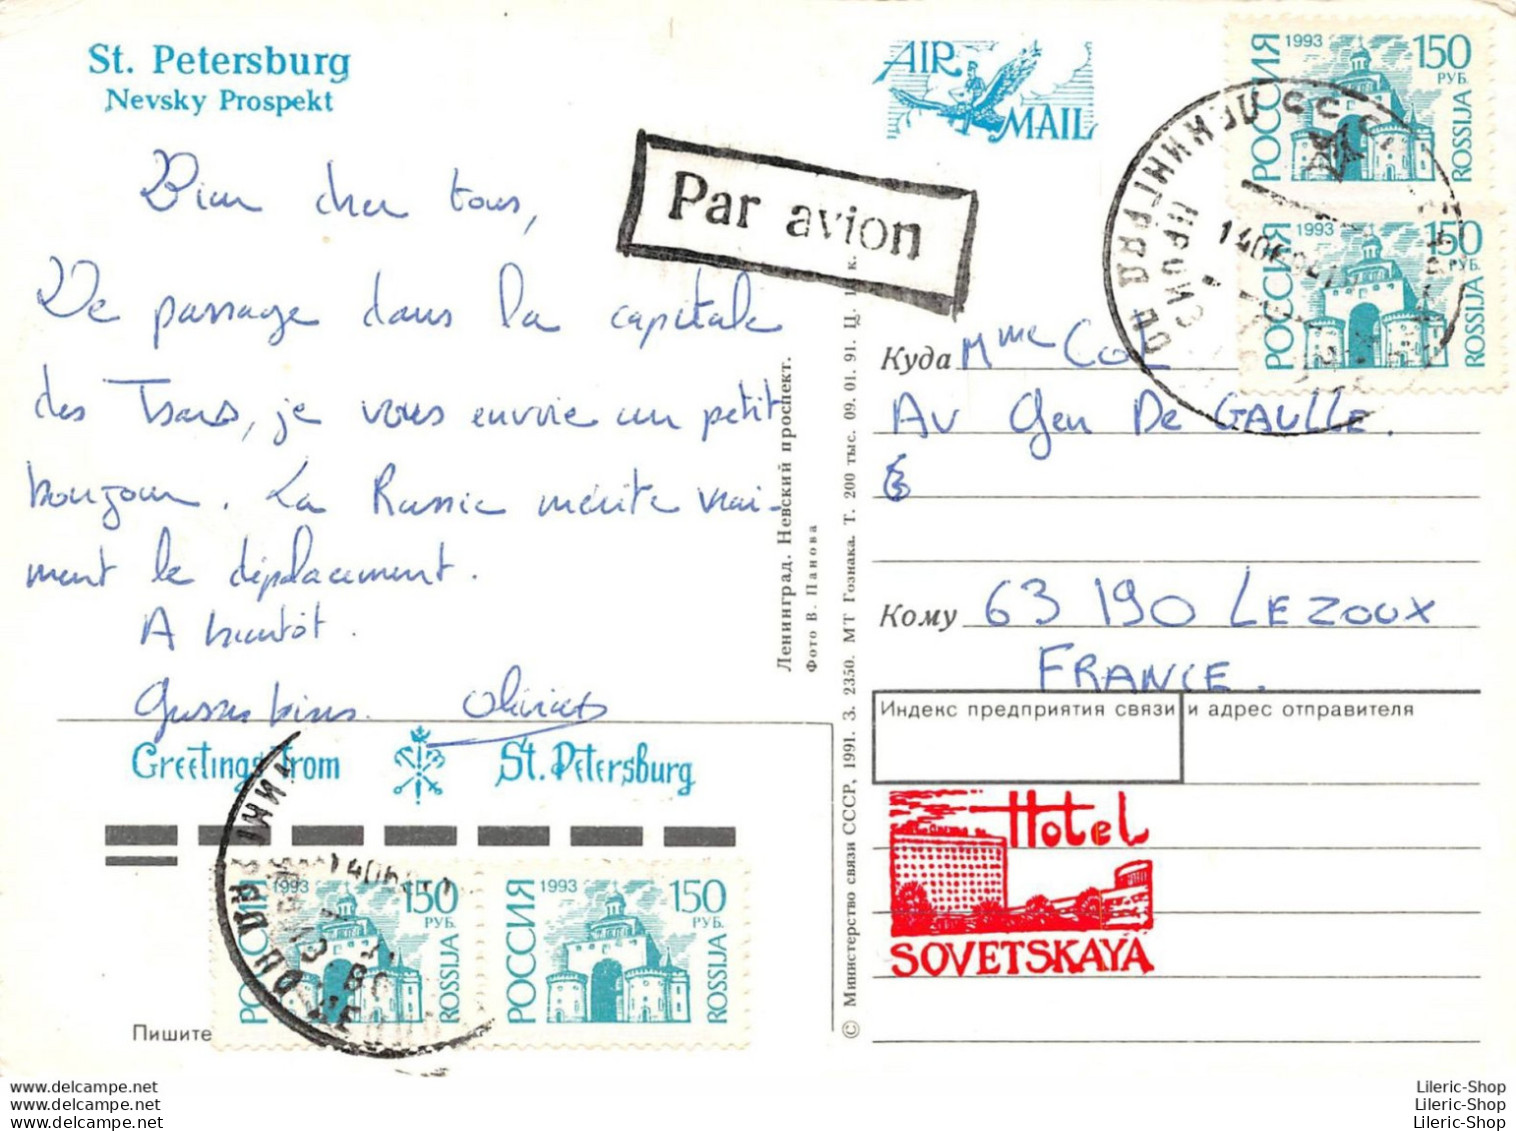 St. Petersburg
Nevsky Prospekt
AIR
MAIL
Par avion
РОССИЯ 1993 150 РУБ. ROSSIJA
РОССИЯ 1993 150 РУБ. ROSSIJA
ЛЕНИНГРАД
140694
Bien cher tous,
De passage dans la capitale
des Tsars, je vous envoie un petit
bonjour. La Russie mérite vrai-
ment le déplacement.
A bientôt.
Grosses bises. Olivier
Ленинград. Невский проспект.
Фото В. Панова
© Министерство связи СССР, 1991. З. 2350. МТ Гознака. Т. 200 тыс. 09. 01. 91. Ц. к.
Куда Mme COL
AV Gen De GAULLE.
Кому 63 190 LEZOUX
FRANCE.
Индекс предприятия связи и адрес отправителя
Greetings from St. Petersburg
Hotel
SOVETSKAYA
РОССИЯ 1993 150 РУБ. ROSSIJA
РОССИЯ 1993 150 РУБ. ROSSIJA
Пишите
www.delcampe.net
www.delcampe.net
www.delcampe.net
Lileric-Shop
Lileric-Shop
Lileric-Shop